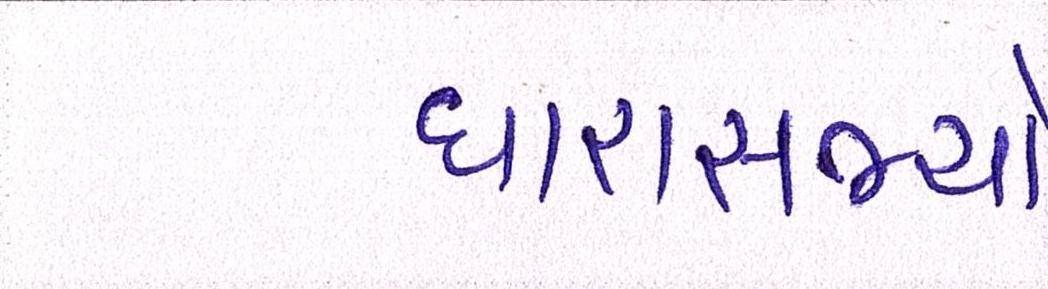 ધારાસભ્યો